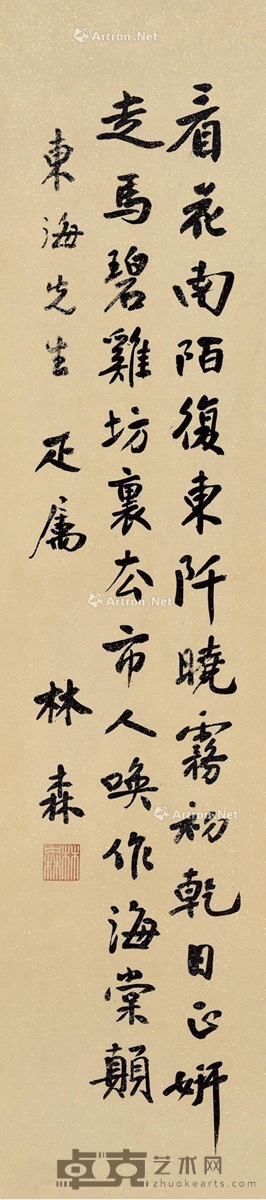 看花南陌復東阡曉霧初乾日正妍
走馬碧雞坊裏去市人喚作海棠顛
東海先生 疋屬 林森
林森
Artron.Net
Artron.Net
Artron.Net
卓克艺术网
zhuokearts.com